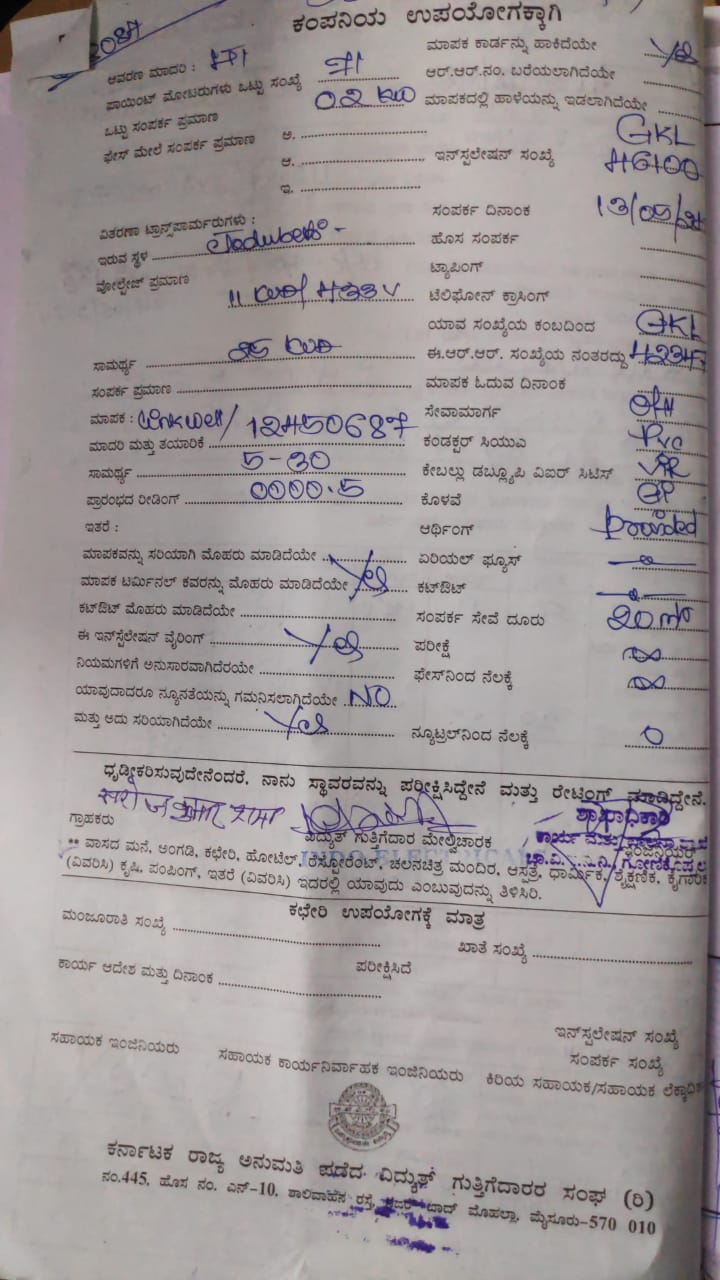 2087
ಕಂಪನಿಯ ಉಪಯೋಗಕ್ಕಾಗಿ
ಆವರಣ ಮಾದರಿ :
ಮಾಪಕ ಕಾರ್ಡನ್ನು ಹಾಕಿದೆಯೇ Yes
ಪಾಯಿಂಟ್ ಮೋಟರುಗಳು ಒಟ್ಟು ಸಂಖ್ಯೆ
ಆರ್.ಆರ್.ನಂ. ಬರೆಯಲಾಗಿದೆಯೇ
ಒಟ್ಟು ಸಂಪರ್ಕ ಪ್ರಮಾಣ 0.2 KW
ಮಾಪಕದಲ್ಲಿ ಹಾಳೆಯನ್ನು ಇಡಲಾಗಿದೆಯೇ
ಫೇಸ್ ಮೇಲೆ ಸಂಪರ್ಕ ಪ್ರಮಾಣ ಅ.
ಆ.
ಇ.
ಇನ್‌ಸ್ಪಲೇಷನ್ ಸಂಖ್ಯೆ GKL 46100
ವಿತರಣಾ ಟ್ರಾನ್ಸ್‌ಫಾರ್ಮರುಗಳು :
ಸಂಪರ್ಕ ದಿನಾಂಕ 13/05/
ಇರುವ ಸ್ಥಳ
ಹೊಸ ಸಂಪರ್ಕ
ವೋಲ್ಟೇಜ್ ಪ್ರಮಾಣ 11 / 433 V
ಟ್ಯಾಪಿಂಗ್
ಟೆಲಿಫೋನ್ ಕ್ರಾಸಿಂಗ್
ಯಾವ ಸಂಖ್ಯೆಯ ಕಂಬದಿಂದ GKL
ಸಾಮರ್ಥ್ಯ 25
ಈ.ಆರ್.ಆರ್. ಸಂಖ್ಯೆಯ ನಂತರದ್ದು
ಸಂಪರ್ಕ ಪ್ರಮಾಣ
ಮಾಪಕ ಓದುವ ದಿನಾಂಕ
ಮಾಪಕ : Linkwell / 12450687
ಸೇವಾಮಾರ್ಗ O/H
ಮಾದರಿ ಮತ್ತು ತಯಾರಿಕೆ
ಕಂಡಕ್ಟರ್ ಸಿಯುಎ PVC
ಸಾಮರ್ಥ್ಯ 5-30
ಕೇಬಲ್ಲು ಡಬ್ಲ್ಯೂಪಿ ವಿಐರ್ ಸಿಟಿಸ್ VIR
ಪ್ರಾರಂಭದ ರೀಡಿಂಗ್ 0000.5
ಕೊಳವೆ GP
ಇತರೆ :
ಆರ್ಥಿಂಗ್
ಮಾಪಕವನ್ನು ಸರಿಯಾಗಿ ಮೊಹರು ಮಾಡಿದೆಯೇ
ಏರಿಯಲ್ ಫ್ಯೂಸ್
ಮಾಪಕ ಟರ್ಮಿನಲ್ ಕವರನ್ನು ಮೊಹರು ಮಾಡಿದೆಯೇ Yes
ಕಟ್‌ಔಟ್
ಕಟ್‌ಔಟ್ ಮೊಹರು ಮಾಡಿದೆಯೇ
ಸಂಪರ್ಕ ಸೇವೆ ದೂರು 20 mt
ಈ ಇನ್‌ಸ್ಪಲೇಷನ್ ವೈರಿಂಗ್ Yes
ಪರೀಕ್ಷೆ ∞
ನಿಯಮಗಳಿಗೆ ಅನುಸಾರವಾಗಿದೆರೆಯೇ
ಫೇಸ್‌ನಿಂದ ನೆಲಕ್ಕೆ ∞
ಯಾವುದಾದರೂ ನ್ಯೂನತೆಯನ್ನು ಗಮನಿಸಲಾಗಿದೆಯೇ NO
ಮತ್ತು ಅದು ಸರಿಯಾಗಿದೆಯೇ Yes
ನ್ಯೂಟ್ರಲ್‌ನಿಂದ ನೆಲಕ್ಕೆ 0
ಧೃಡೀಕರಿಸುವುದೇನೆಂದರೆ, ನಾನು ಸ್ಥಾವರವನ್ನು ಪರೀಕ್ಷಿಸಿದ್ದೇನೆ ಮತ್ತು ರೇಟಿಂಗ್ ಮಾಡಿದ್ದೇನೆ.
ಶಾಖಾಧಿಕಾರಿ
ಗ್ರಾಹಕರು ವಿದ್ಯುತ್ ಗುತ್ತಿಗೆದಾರ ಮೇಲ್ವಿಚಾರಕ
** ವಾಸದ ಮನೆ, ಅಂಗಡಿ, ಕಛೇರಿ, ಹೋಟೆಲ್, ರೆಸ್ಟೋರೆಂಟ್, ಚಲನಚಿತ್ರ ಮಂದಿರ, ಆಸ್ಪತ್ರೆ, ಧಾರ್ಮಿಕ, ಶೈಕ್ಷಣಿಕ, ಕೈಗಾರಿಕೆ
(ವಿವರಿಸಿ) ಕೃಷಿ, ಪಂಪಿಂಗ್, ಇತರೆ (ವಿವರಿಸಿ) ಇದರಲ್ಲಿ ಯಾವುದು ಎಂಬುವುದನ್ನು ತಿಳಿಸಿರಿ.
ಕಛೇರಿ ಉಪಯೋಗಕ್ಕೆ ಮಾತ್ರ
ಮಂಜೂರಾತಿ ಸಂಖ್ಯೆ
ಖಾತೆ ಸಂಖ್ಯೆ
ಕಾರ್ಯ ಆದೇಶ ಮತ್ತು ದಿನಾಂಕ
ಪರೀಕ್ಷಿಸಿದೆ
ಇನ್‌ಸ್ಪಲೇಷನ್ ಸಂಖ್ಯೆ
ಸಂಪರ್ಕ ಸಂಖ್ಯೆ
ಸಹಾಯಕ ಇಂಜಿನಿಯರು ಸಹಾಯಕ ಕಾರ್ಯನಿರ್ವಾಹಕ ಇಂಜಿನಿಯರು ಕಿರಿಯ ಸಹಾಯಕ/ಸಹಾಯಕ ಲೆಕ್ಕಾಧಿಕ
ಕರ್ನಾಟಕ ರಾಜ್ಯ ಅನುಮತಿ ಪಡೆದ ವಿದ್ಯುತ್ ಗುತ್ತಿಗೆದಾರರ ಸಂಘ (ರಿ)
ನಂ.445, ಹೊಸ ನಂ. ಎನ್-10, ಶಾಲಿವಾಹನ ರಸ್ತೆ, ಬಾದ್ ಮೊಹಲ್ಲಾ, ಮೈಸೂರು-570 010